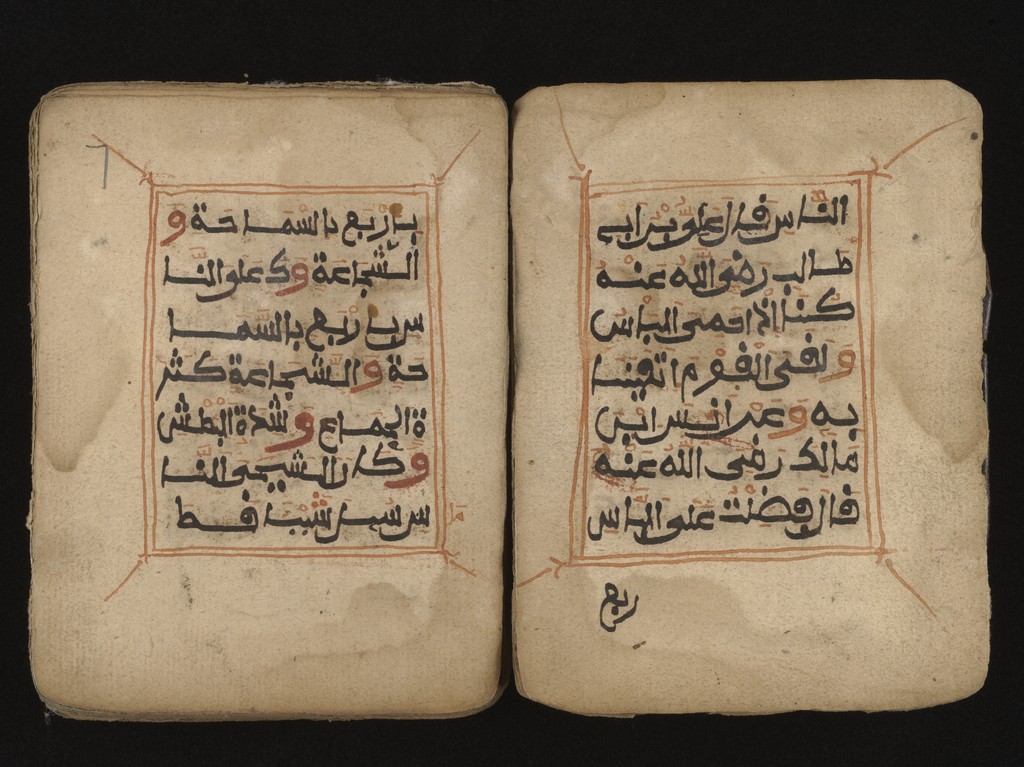 الناس قال علي بن ابي
طالب رضي الله عنه
كنا اذا حمي الباس
ولقي القوم اتقينا
به وعن انس ابن
مالك رضي الله عنه
قال فضلت علي الناس
ربع
باربع بالسماحة و
الشجاعة و علي النا
س باربع بالسما
حة والشجاعة كثر
ة الجماع وشدة البطش
وكان اشجع النا
س